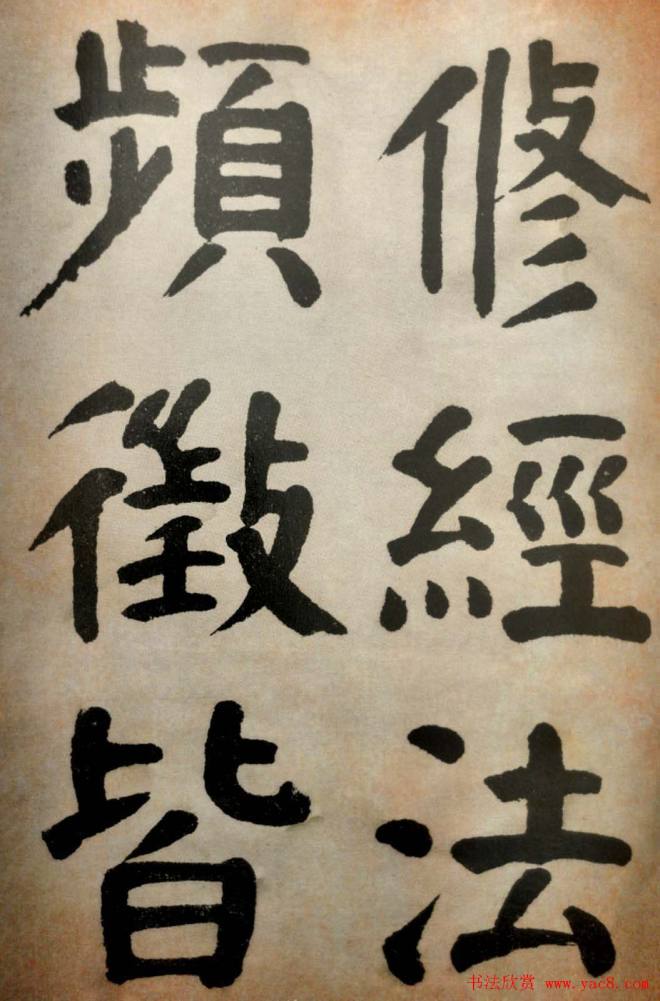 修經法
頻徵皆
书法欣赏 www.yac8.com